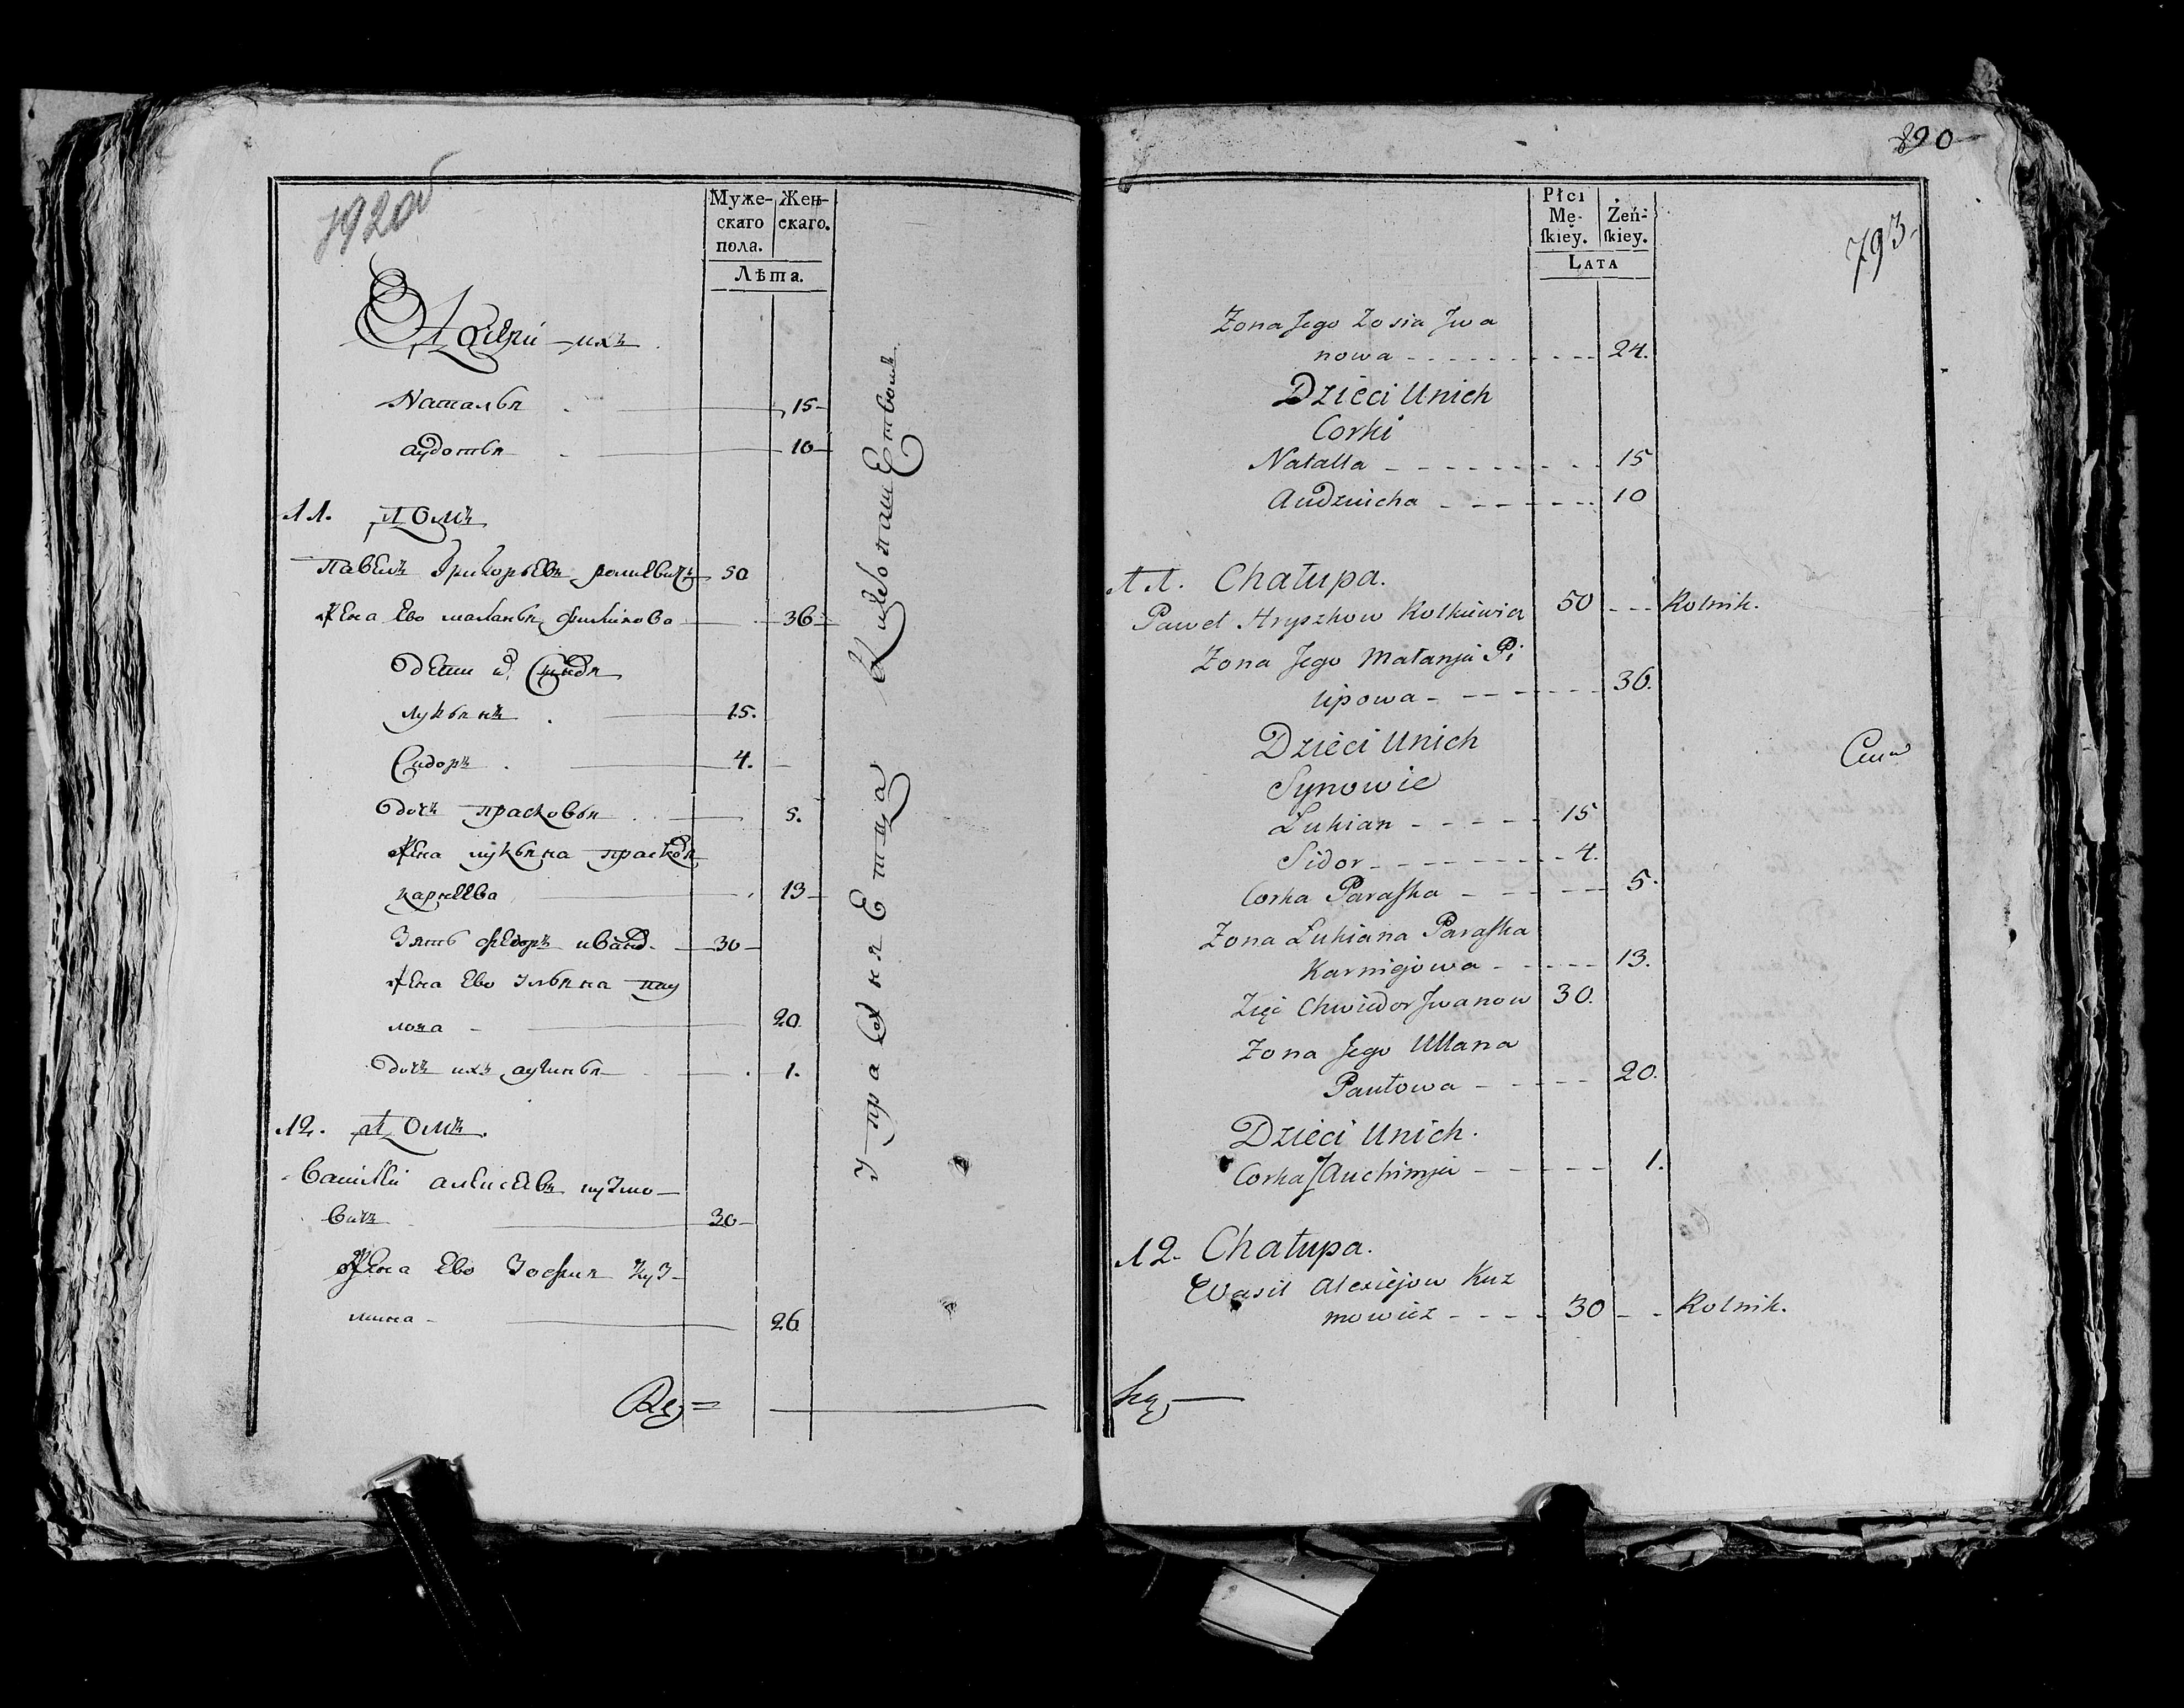 792об
Муже-
скаго
пола.
Жен-
скаго.
Лѣта.
Дочери ихъ
Наталья 15
аудотья 10
11. Домъ
павелъ Григорьевъ 50
жена Ево маланья филипова 36
дети их Сыновя
лукьянъ 15.
Сидоръ 4.
дочь прасковья 5.
жена лукьяна прасковя
карнеева 13
Зять федоръ иванов 30
жена Ево Ульяна пау
лова 20.
дочь ихъ аухимья 1.
12. Домъ
Василий алексеевъ кузмо
вичъ 30
жена Ево Зофия куз
мина 26
890
793
Płci
Mę-
ſkiey.
Żeń-
ſkiey.
LATA
Zona Jego Zosia Jwa
nowa 24.
Dzieci Unich
Corki
Natalla 15
Audzuicha 10
11. Chałupa.
Paweł Hryszkow Kolkiewicz 50 Rolnik.
Zona Jego Małanja Pi
lipowa 36.
Dzieci Unich
Synowie
Łukian 15
Sidor 4.
Corka Paraſka 5.
Zona Łukiana Paraſka
Karniejowa 13.
Zięć Chwiedor Jwanow 30.
Zona Jego Ullana
Paułowa 20.
Dzieci Unich.
Corka Auchimja 1.
12. Chałupa.
Wasil Alexiejow Kuz
mowicz 30 Rolnik.